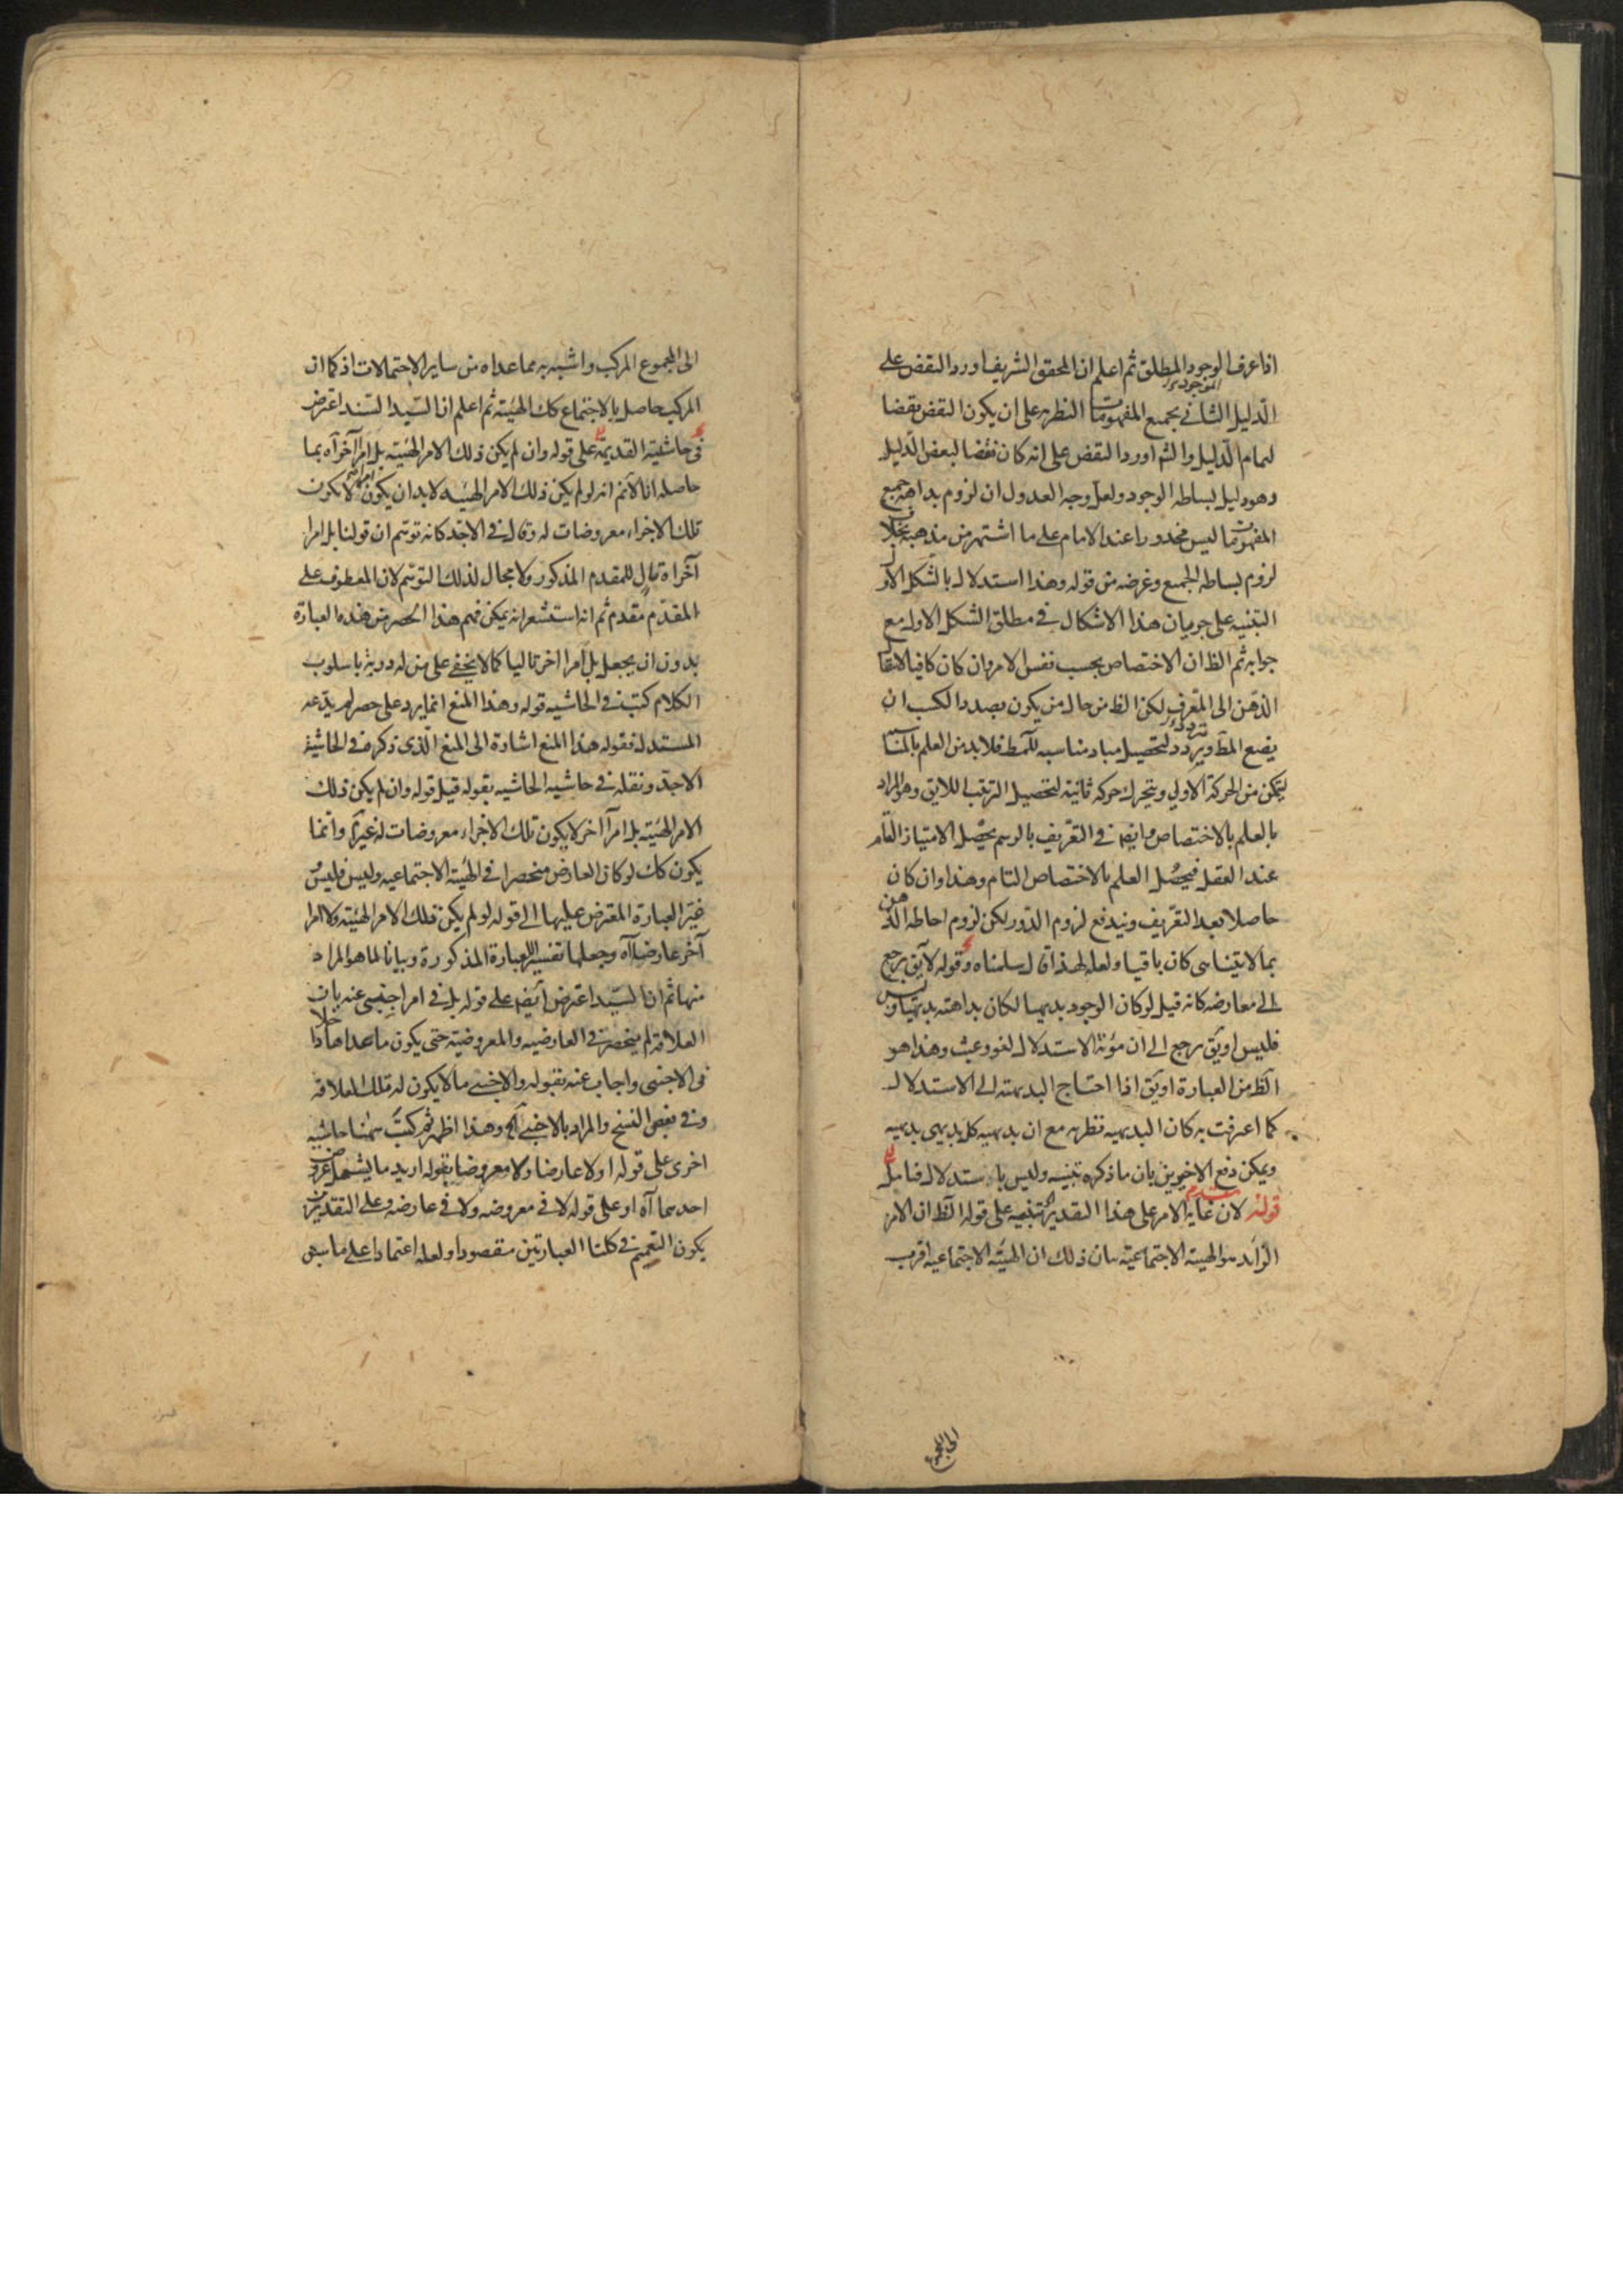 اذا عرف الوجود المطلق ثم اعلم ان المحقق الشريف اورد النقض على
الدليل الثانى بجميع المفهومات الموجودية النظرية على ان يكون النقض نقضا
لتمام الدليل والشه اورد النقض على انه كان نقضا لبعض الدليل
وهو دليل بساطه الوجود ولعل وجه العدول ان لزوم بداهة جميع
المفهومات ليس محدورا عند الامام على ما اشتهر من مذهبه بخلاف
لزوم بساطه الجميع وغرضه من قوله وهذا استدلال بالشكل الاول
التنبيه على جريان هذا الاشكال فى مطلق الشكل الاول مع
جوابه ثم الظ ان الاختصاص بحسب نفس الامر وان كان كافيا لانتقال
الذهن الى المعرف لكن الظ من حال من يكون بصدد الكسب ان
يضع المط ويتردد لتحصيل مباد مناسبه للمط فلا بد من العلم بالمناسبه
ليتمكن من الحركة الاولى ويتحرك حركه ثانية لتحصيل الترتيب اللايق وهو المراد
بالعلم بالاختصاص وايضا فى التعريف بالرسم يحصل الامتياز التام
عند العقل فيحصل العلم بالاختصاص التام وهذا وان كان
حاصلا بعد التعريف ويندفع لزوم الدور لكن لزوم احاطه الذهن
بما لا يتناهى كان باقيا ولعله لهذا قال سلمناه وقوله لا يق يرجع
الى معارضه كانه قيل لو كان الوجود بديهيا لكان بداهته بديهيا وليس
فليس او يق يرجع الى ان مؤنة الاستدلال لغو وعبث وهذا هو
الظ من العبارة او يق اذا احتاج البديهته الى الاستدلال
كما اعترفت به كان البديهيه نظريه مع ان بديهيه كل بديهى بديهيه
ويمكن دفع الاخيرين بان ما ذكره تنبيه وليس باستدلال فتامل
قوله لان غاية الامر على هذا التقدير تنبيه على قوله الظ ان الامر
الزائد هو الهيئة الاجتماعية بيان ذلك ان الهيئة الاجتماعيه اقرب
الى المجموع
الى المجموع المركب واشبه به مما عداه من ساير الاحتمالات اذ كما ان
المركب حاصل بالاجتماع كك الهيئة ثم اعلم ان السيد السند اعترض
فى حاشيته القديمة على قوله وان لم يكن ذلك الامر الهيئة بل امرا آخر آه بما
حاصله انا لانم انه لو لم يكن ذلك الامر الهيئه لا بد ان يكون لا يكون
تلك الاجزاء معروضات له وقال فى الاجد كانه توهم ان قولنا بل امرا
آخر آه تال للمقدم المذكور ولا مجال لذلك التوهم لان المعطوف على
المقدم مقدم ثم انه استشعر انه يمكن فهم هذا الحصر من هذه العبارة
بدون ان يجعل بل امرا اخر تاليا كما لا يخفى على من له دربة باسلوب
الكلام كتب فى الحاشيه قوله وهذا المنع انما يرد على حصر لم يدعه
المستدل فقوله هذا المنع اشارة الى المنع الذى ذكره فى الحاشية
الاجد ونقله فى حاشيه الحاشيه بقوله قيل قوله وان لم يكن ذلك
الامر الهيئة بل امرا اخر لا يكون تلك الاجزاء معروضات له غير لازم وانما
يكون كك لو كان العارض منحصرا فى الهيئة الاجتماعيه وليس فليس
غير العبارة المعترض عليها الى قوله لو لم يكن ذلك الامر الهيئة ولا امرا
آخر عارضا آه وجعلها تفسيرا للعبارة المذكورة وبيانا لما هو المراد
منها ثم ان السيد اعترض ايضا على قوله بل فى امر اجنبى عنه بان
العلاقة لم ينحصر فى العارضيه والمعروضية حتى يكون ما عداها داخلا
فى الاجنبى واجاب عنه بقوله والاجنبى ما لا يكون له تلك العلاقه
وفى بعض النسخ والمراد بالاجنبى الخ وهذا اظهر ثم كتب ههنا حاشيه
اخرى على قوله او لا عارضا ولا معروضا بقوله اريد ما يشمل عروض
احدهما آه او على قوله لا فى معروضه ولا فى عارضه وعلى التقديرين
يكون التعميم فى كلتا العبارتين مقصودا ولعله اعتمادا على ما سبق